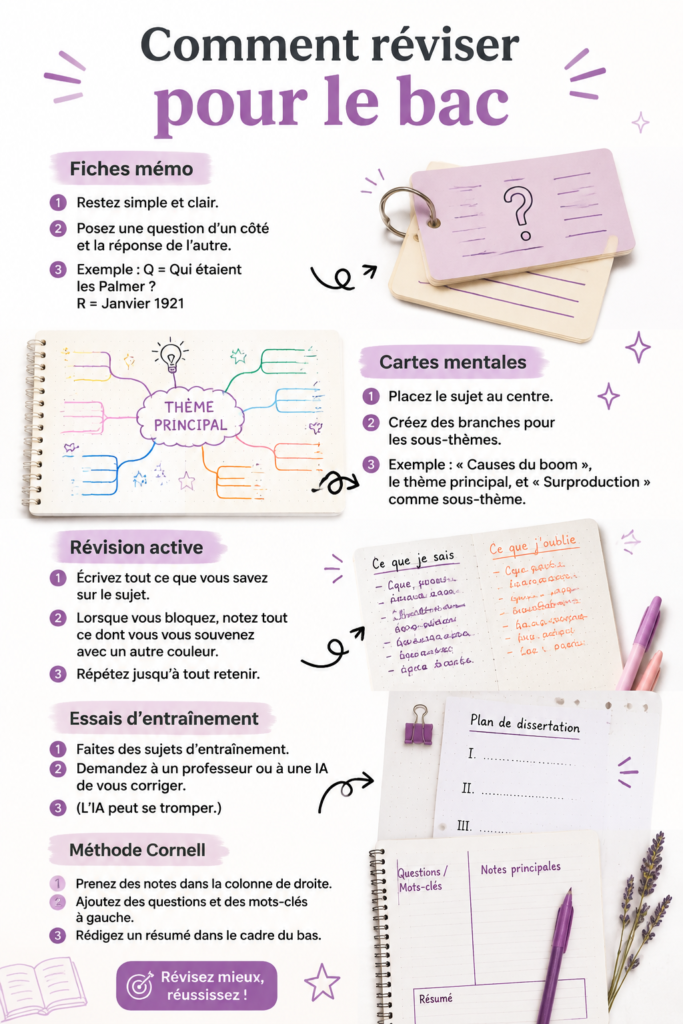 Comment réviser
pour le bac
Fiches mémo
1 Restez simple et clair.
2 Posez une question d'un côté
et la réponse de l'autre.
3 Exemple : Q = Qui étaient
les Palmer ?
R = Janvier 1921
?
THÈME
PRINCIPAL
Cartes mentales
1 Placez le sujet au centre.
2 Créez des branches pour
les sous-thèmes.
3 Exemple : « Causes du boom »,
le thème principal, et « Surproduction »
comme sous-thème.
Révision active
1 Écrivez tout ce que vous savez
sur le sujet.
2 Lorsque vous bloquez, notez tout
ce dont vous vous souvenez
avec un autre couleur.
3 Répétez jusqu'à tout retenir.
Ce que je sais
Ce que j'oublie
Essais d'entraînement
1 Faites des sujets d'entraînement.
2 Demandez à un professeur ou à une IA
de vous corriger.
3 (L'IA peut se tromper.)
Plan de dissertation
I. ....................
II. ....................
III. ....................
Méthode Cornell
1 Prenez des notes dans la colonne de droite.
2 Ajoutez des questions et des mots-clés
à gauche.
3 Rédigez un résumé dans le cadre du bas.
Questions /
Mots-clés
Notes principales
Résumé
Révisez mieux,
réussissez !